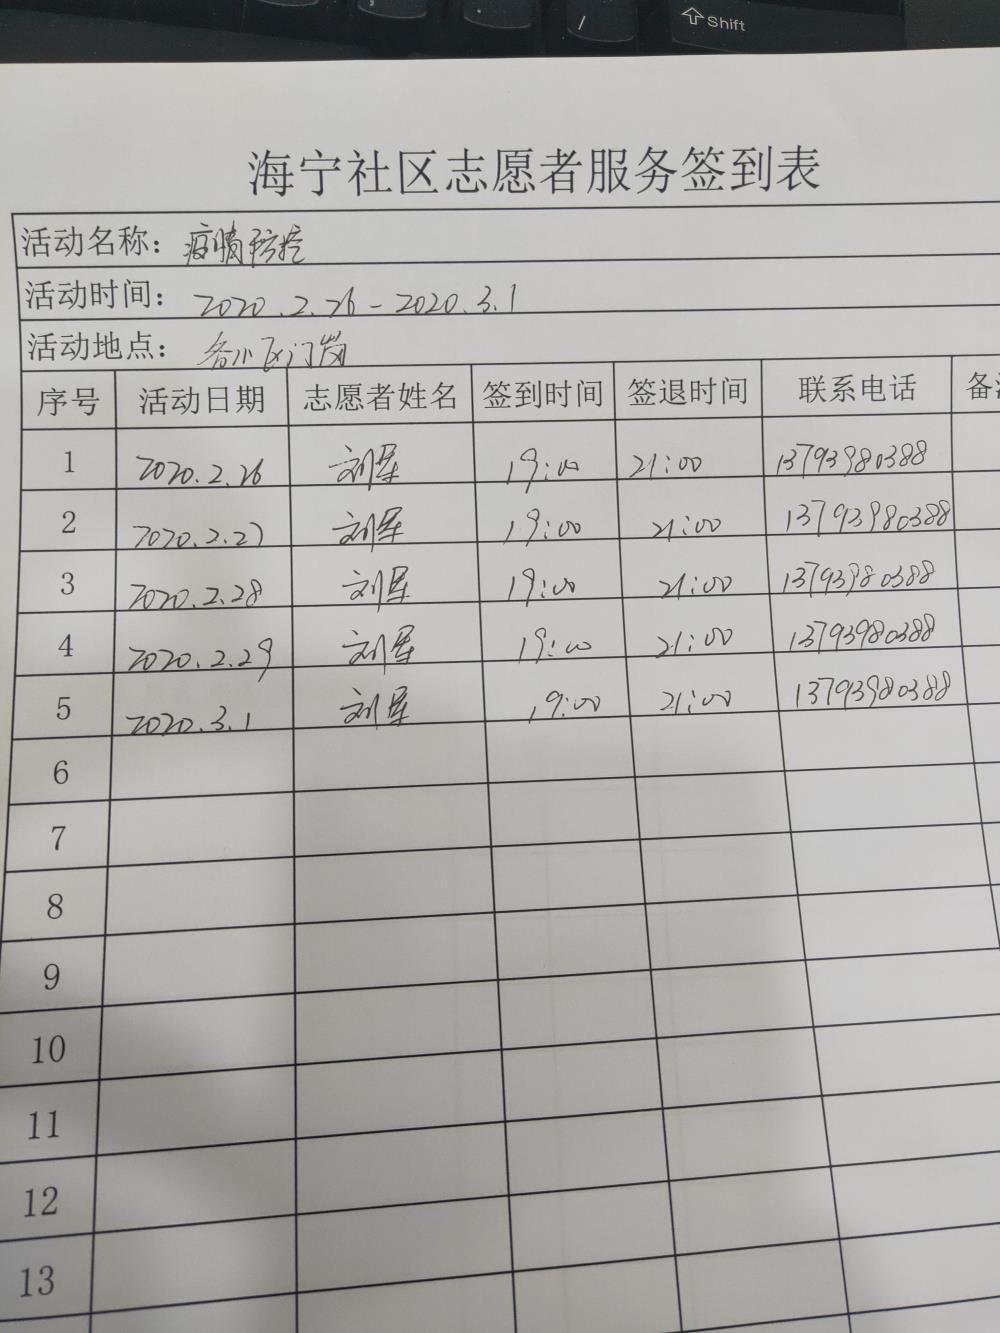 Shift
/
海宁社区志愿者服务签到表
活动名称：疫情防控
活动时间：2020.2.26-2020.3.1
活动地点：各小区门岗
序号 活动日期 志愿者姓名 签到时间 签退时间 联系电话 备
1 2020.2.26 刘军 19:00 21:00 13793980388
2 2020.2.27 刘军 19:00 21:00 13793980388
3 2020.2.28 刘军 19:00 21:00 13793980388
4 2020.2.29 刘军 19:00 21:00 13793980388
5 2020.3.1 刘军 19:00 21:00 13793980388
6
7
8
9
10
11
12
13